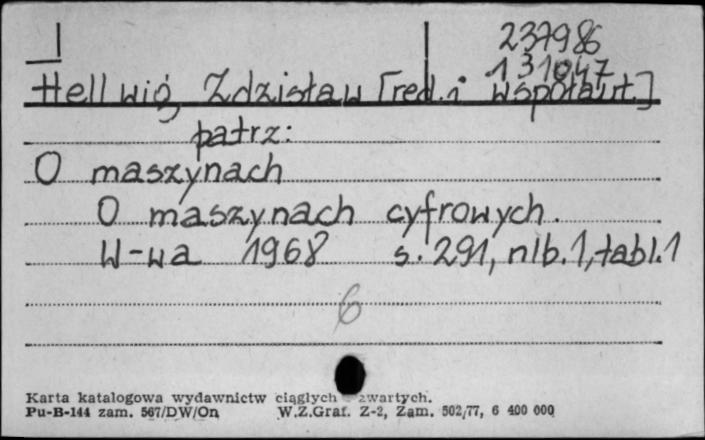 237986
131047
Hellwig, Zdzisław [red. i współaut.]
patrz:
O maszynach
O maszynach cyfrowych.
W-wa 1968 s. 291, nlb. 1, tabl. 1
6
Karta katalogowa wydawnictw ciągłych zwartych.
Pu-B-144 zam. 567/DW/On W.Z.Graf. Z-2, Zam. 502/77, 6 400 000